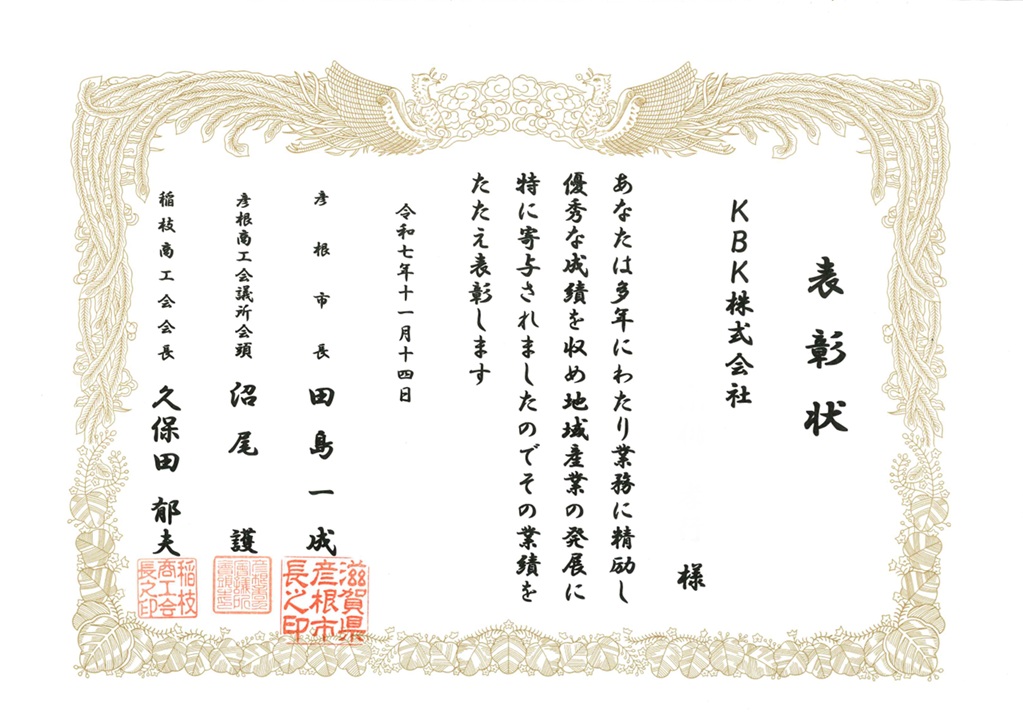 表彰状
KBK株式会社
様
あなたは多年にわたり業務に精励し
優秀な成績を収め地域産業の発展に
特に寄与されましたのでその業績を
たたえ表彰します
令和七年十一月十四日
彦根市長 田島一成
滋賀県
彦根市
長之印
彦根商工会議所会頭 沼尾護
稲枝商工会会長 久保田郁夫
稲枝
商工会
長之印